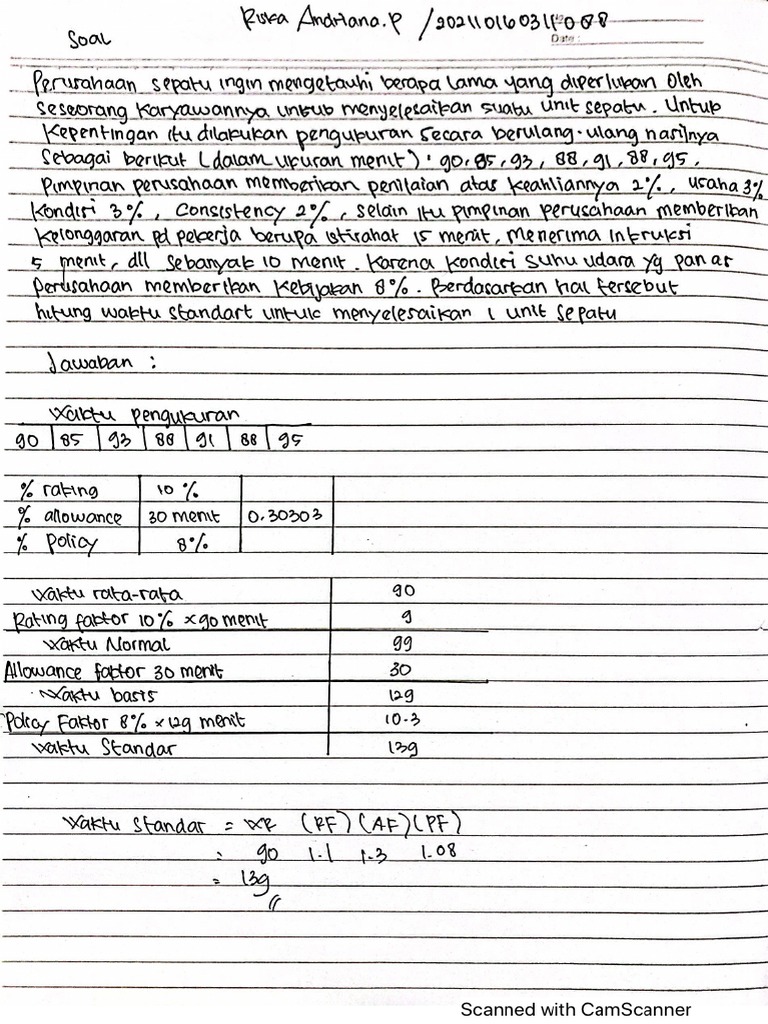 Riska Andriana.P / 202110160311008
Date:
Soal
Perusahaan sepatu ingin mengetauhi berapa lama yang diperlukan oleh
seseorang karyawannya untuk menyelesaikan suatu unit sepatu. Untuk
kepentingan itu dilakukan pengukuran secara berulang-ulang narilnya
sebagai berikut (dalam ukuran menit) : 90, 85, 93, 88, 91, 88, 95.
Pimpinan perusahaan memberikan penilaian atas keahliannya 2%, usaha 3%
Kondisi 3%, Consistency 2%, selain itu pimpinan perusahaan memberikan
kelonggaran pd pekerja berupa istirahat 15 menit, menerima intruksi
5 menit, dll sebanyak 10 menit. Karena kondisi suhu udara yg panas
perusahaan memberikan kebijakan 8%. Berdasarkan hal tersebut
hitung waktu standart untuk menyelesaikan 1 unit sepatu
Jawaban :
Waktu pengukuran
90 85 93 88 91 88 95
% rating 10 %
% allowance 30 menit 0.30303
% Policy 8%
Waktu rata-rata 90
Rating faktor 10% x 90 menit 9
Waktu Normal 99
Allowance faktor 30 menit 30
Waktu basis 129
Policy Faktor 8% x 129 menit 10.3
Waktu Standar 139
Waktu Standar = WR (RF) (AF) (PF)
= 90 1.1 1.3 1.08
= 139
Scanned with CamScanner